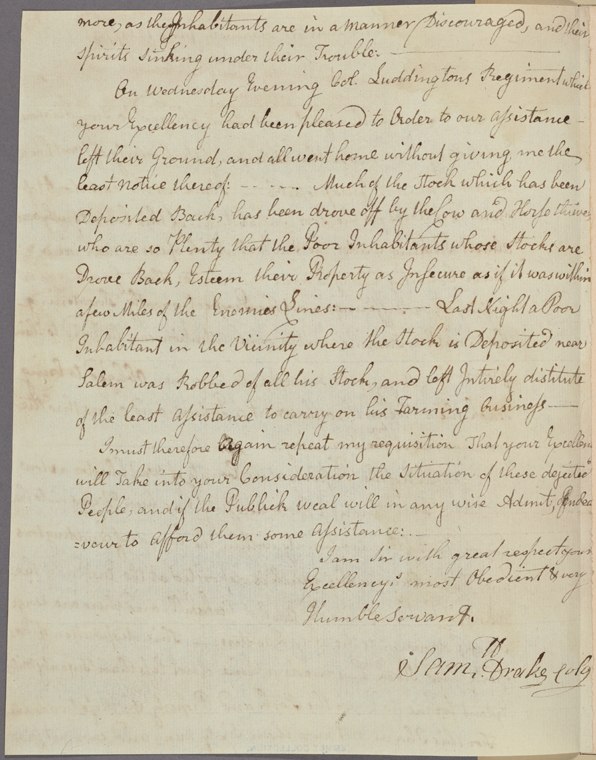 more, as the Inhabitants are in a manner Discouraged, and their
spirits sinking under their Trouble: ———
On Wednesday Evening Col. Luddingtons Regiment which
your Excellency had been pleased to Order to our assistance –
left their Ground, and all went home without giving me the
least Notice thereof: – – . – . Much of the Stock which has been
Deposited Back, has been drove off by the Cow and Horse thieves
who are so Plenty that the Poor Inhabitants whose Stocks are
Drove Back, Esteem their Property as Insecure as if it was within
a few Miles of the Enemies Lines: – ——— Last Night a Poor
Inhabitant in the Vicinity where the Stock is Deposited near
Salem was Robbed of all his Stock, and left Intirely distitute
of the least assistance to carry on his Farming business ——
I must therefore Again repeat my requisition That your Excellen
will Take into your Consideration the Situation of these dejected
People, and if the Publick weal will in any wise Admit, Endea
=vour to afford them some assistance: . –
I am Sir with great respect your
Excellency's most Obedient & very
Humble Servant.
Sam.ll Drake Col